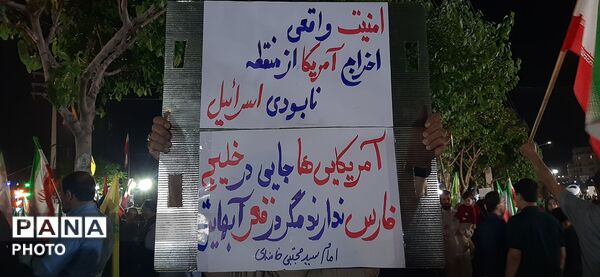 امنیت واقعی
اخراج آمریکا از منطقه
نابودی اسرائیل
آمریکایی ها جایی در خلیج
فارس ندارند مگر در قعر آبهایش
امام سید مجتبی خامنه‌ای
PANA
PHOTO